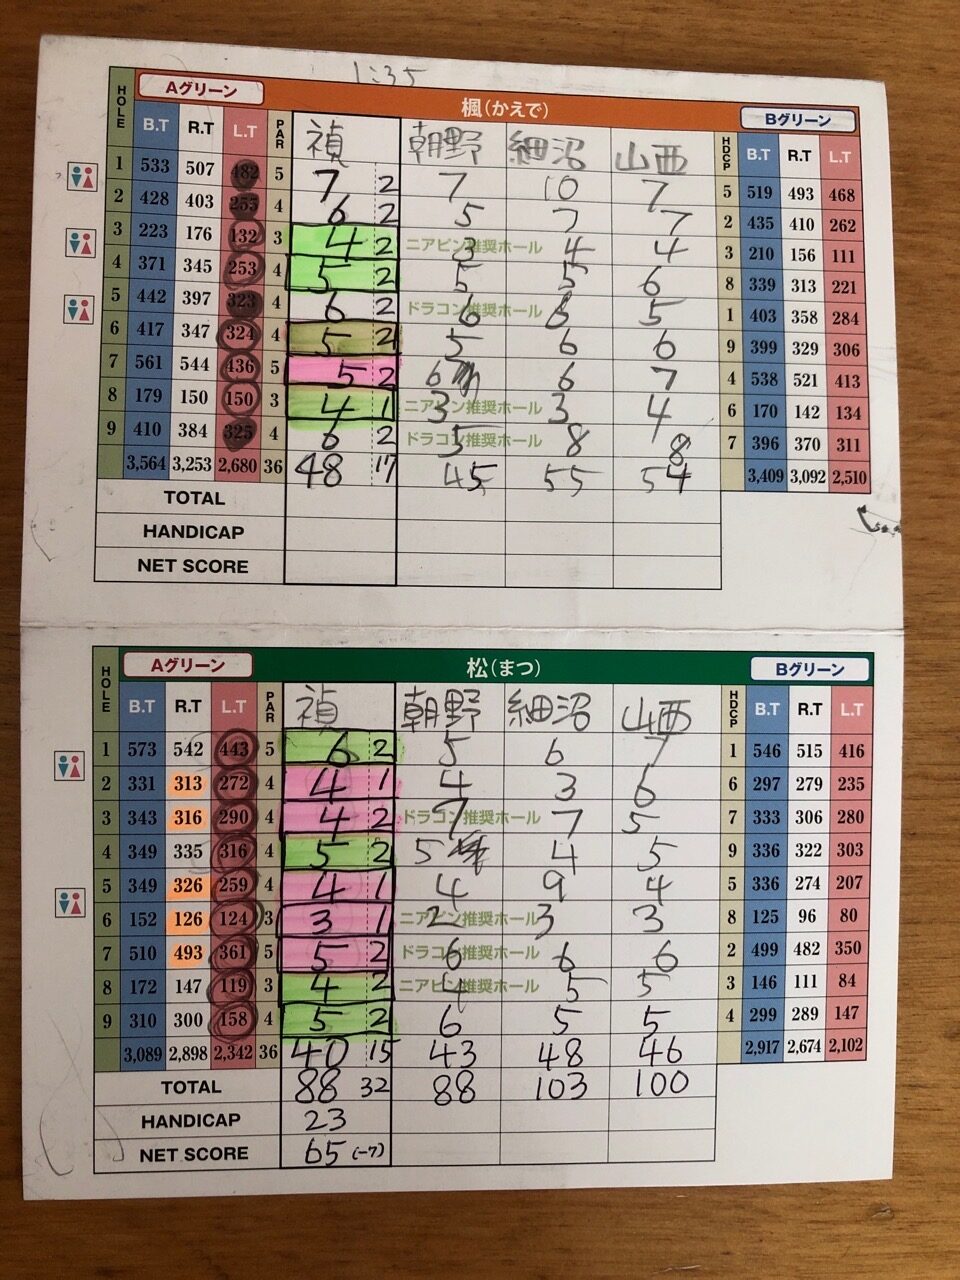 1:35
HOLE Aグリーン 楓(かえで) Bグリーン
B.T R.T L.T PAR 禎 朝野 細沼 山西 HDCP B.T R.T L.T
1 533 507 482 5 7 2 7 10 7 5 519 493 468
2 428 403 255 4 6 2 5 7 7 2 435 410 262
3 223 176 132 3 4 2 ニアピン推奨ホール 3 4 4 3 210 156 111
4 371 345 253 4 5 2 5 5 6 8 339 313 221
5 442 397 323 4 6 2 ドラコン推奨ホール 6 6 5 1 403 358 284
6 417 347 324 4 5 2 5 6 6 9 399 329 306
7 561 544 436 5 5 2 6 6 7 4 538 521 413
8 179 150 150 3 4 1 ニアピン推奨ホール 3 3 4 6 170 142 134
9 410 384 325 4 6 2 ドラコン推奨ホール 5 8 8 7 396 370 311
3,564 3,253 2,680 36 48 17 45 55 54 3,409 3,092 2,510
TOTAL
HANDICAP
NET SCORE
HOLE Aグリーン 松(まつ) Bグリーン
B.T R.T L.T PAR 禎 朝野 細沼 山西 HDCP B.T R.T L.T
1 573 542 443 5 6 2 5 6 7 1 546 515 416
2 331 313 272 4 4 1 4 3 6 6 297 279 235
3 343 316 290 4 4 2 ドラコン推奨ホール 7 7 5 7 333 306 280
4 349 335 316 4 5 2 5 4 5 9 336 322 303
5 349 326 259 4 4 1 4 9 4 5 336 274 207
6 152 126 124 3 3 1 ニアピン推奨ホール 2 3 3 8 125 96 80
7 510 493 361 5 5 2 ドラコン推奨ホール 6 6 6 2 499 482 350
8 172 147 119 3 4 2 ニアピン推奨ホール 4 5 5 3 146 111 84
9 310 300 158 4 5 2 6 5 5 4 299 289 147
3,089 2,898 2,342 36 40 15 43 48 46 2,917 2,674 2,102
TOTAL 88 32 88 103 100
HANDICAP 23
NET SCORE 65 (-7)